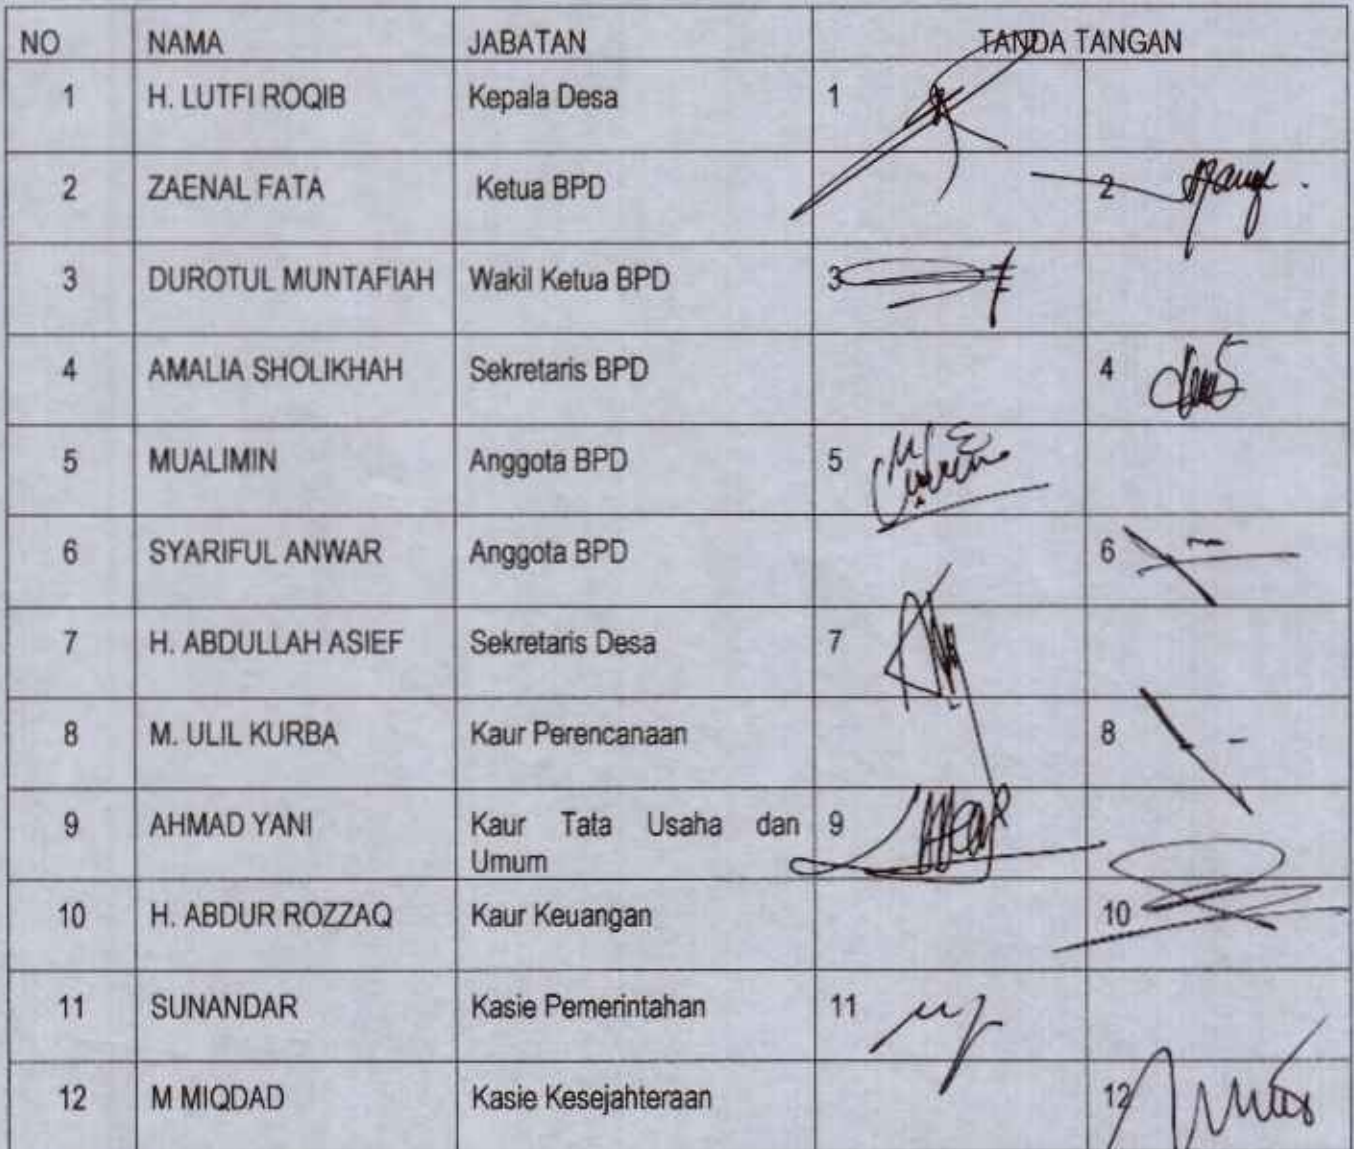 NO NAMA JABATAN TANDA TANGAN
1 H. LUTFI ROQIB Kepala Desa 1
2 ZAENAL FATA Ketua BPD 2
3 DUROTUL MUNTAFIAH Wakil Ketua BPD 3
4 AMALIA SHOLIKHAH Sekretaris BPD 4
5 MUALIMIN Anggota BPD 5
6 SYARIFUL ANWAR Anggota BPD 6
7 H. ABDULLAH ASIEF Sekretaris Desa 7
8 M. ULIL KURBA Kaur Perencanaan 8
9 AHMAD YANI Kaur Tata Usaha dan 9
Umum
10 H. ABDUR ROZZAQ Kaur Keuangan 10
11 SUNANDAR Kasie Pemerintahan 11
12 M MIQDAD Kasie Kesejahteraan 12